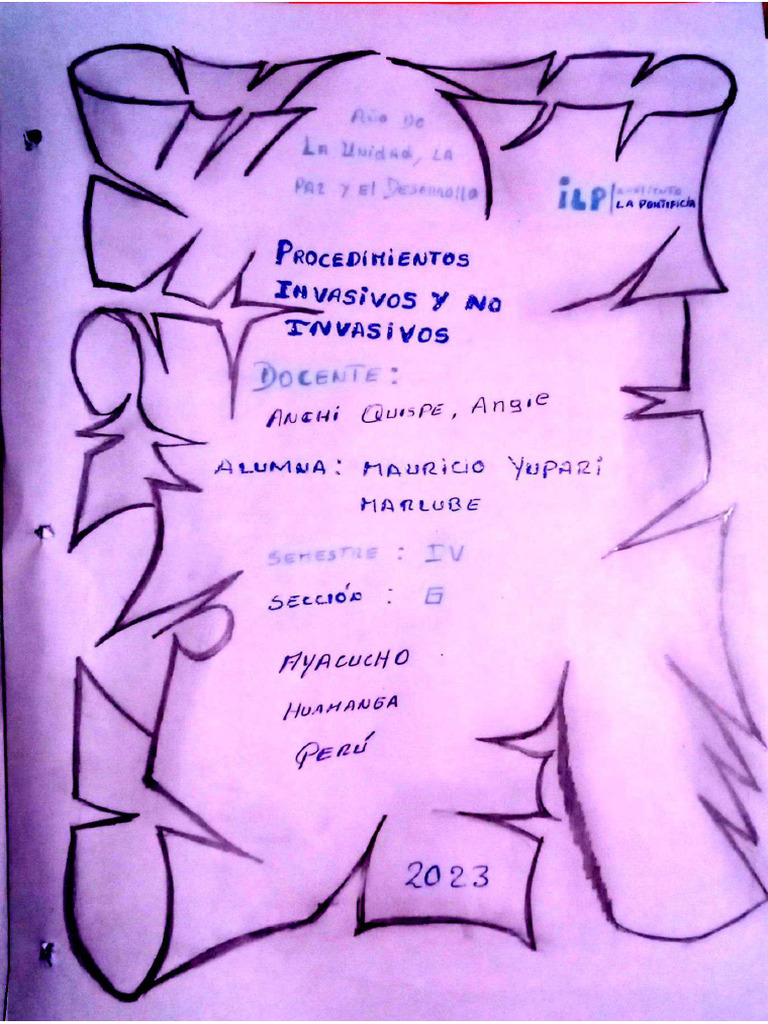 Año de
La Unidad, la
Paz y el Desarrollo
iLP | INSTITUTO
LA PONTIFICIA
PROCEDIMIENTOS
INVASIVOS Y NO
INVASIVOS
DOCENTE:
ANCHI QUISPE, Angie
ALUMNA: MAURICIO YUPARI
MARLUBE
SEMESTRE : IV
SECCIÓN : G
AYACUCHO
HUAMANGA
PERÚ
2023